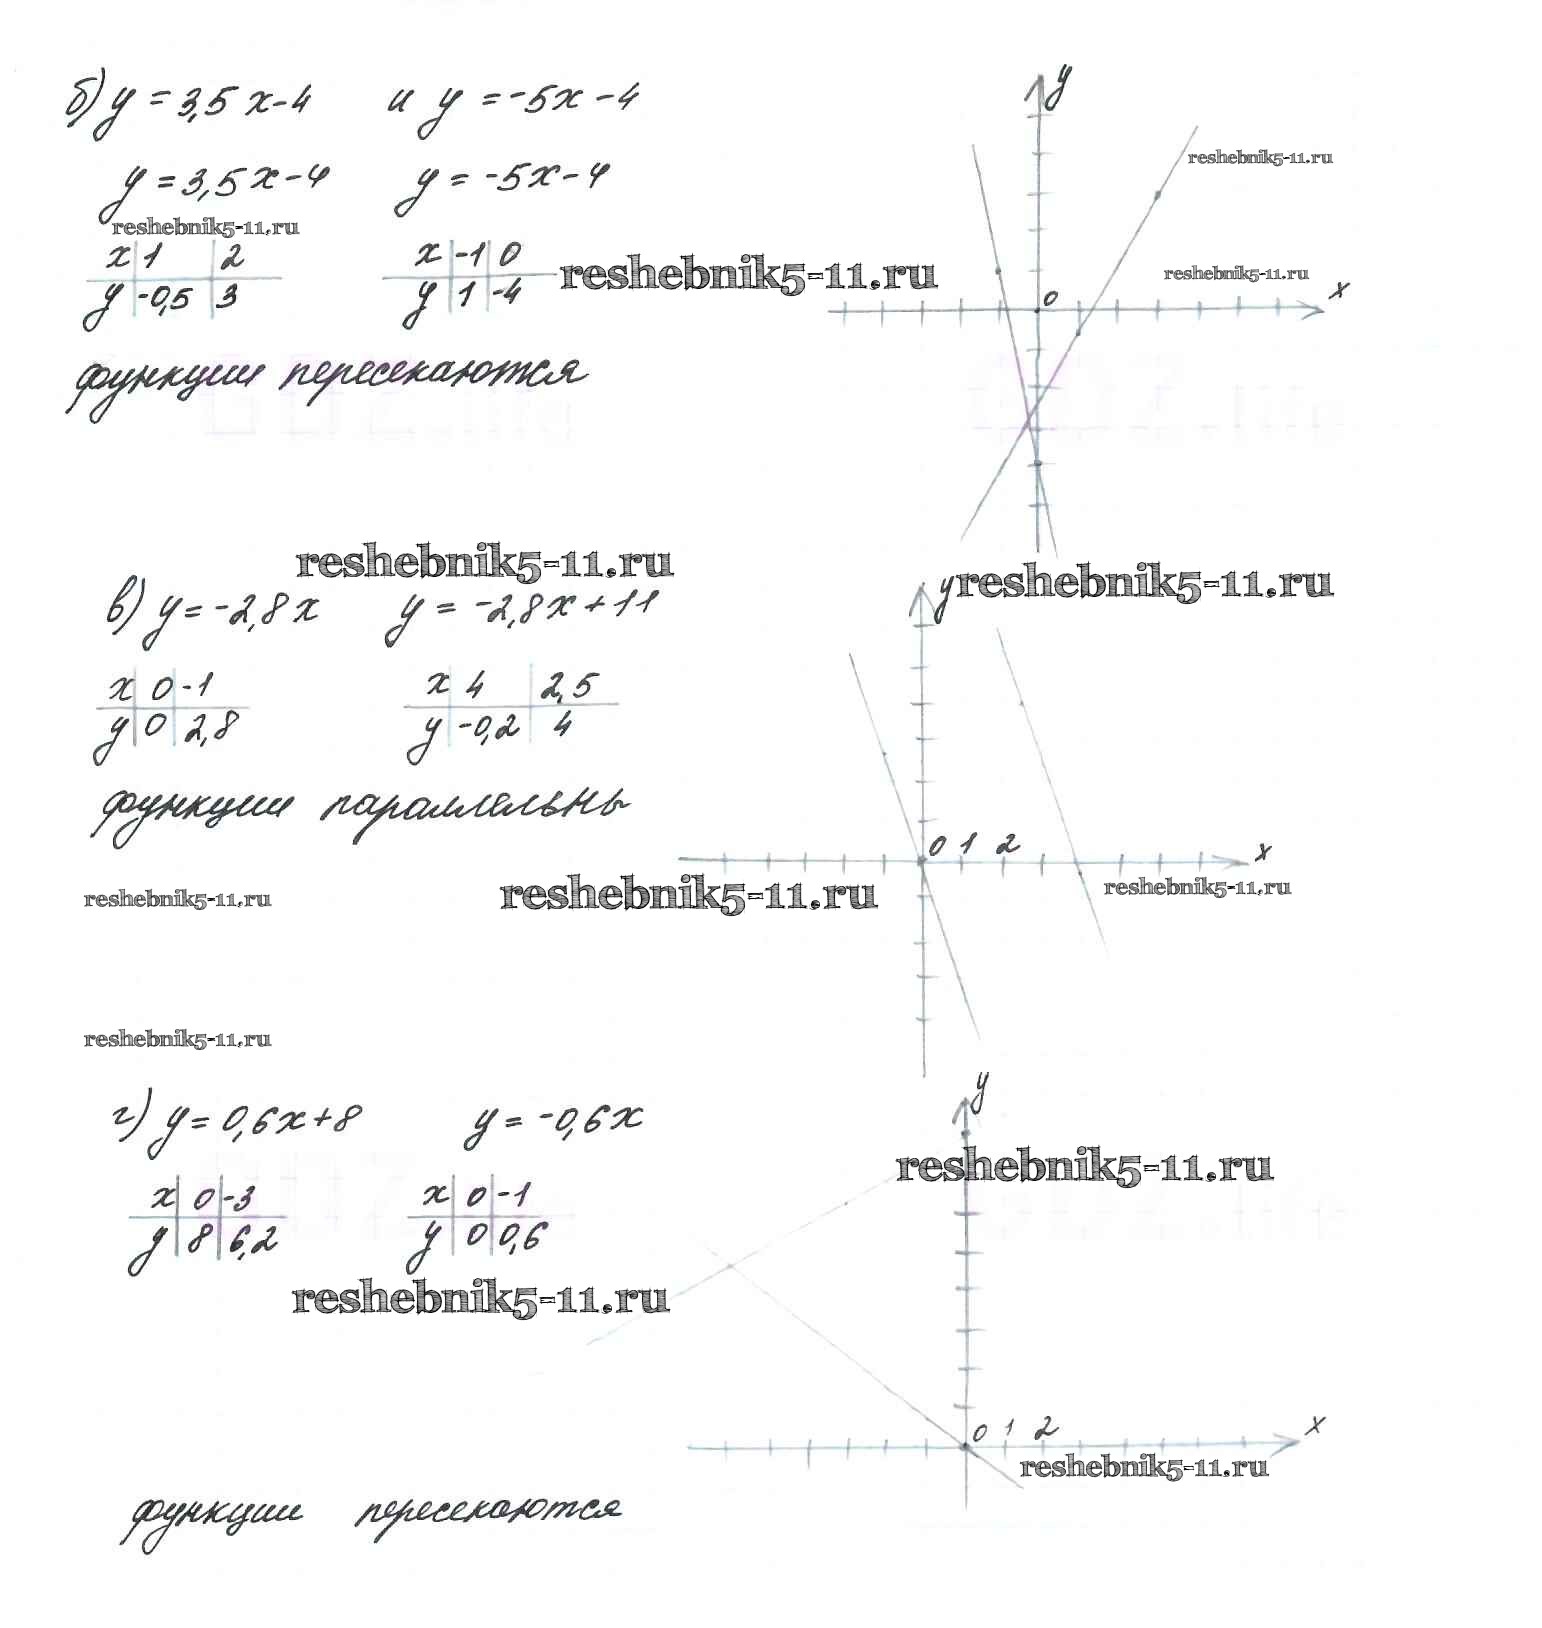 б) y = 3,5x-4 и y = -5x-4
y = 3,5x-4 y = -5x-4
reshebnik5-11.ru
x 1 2 x -1 0
y -0,5 3 y 1 -4
reshebnik5-11.ru
функции пересекаются
y
reshebnik5-11.ru
reshebnik5-11.ru
0 x
reshebnik5-11.ru
в) y = -2,8x y = -2,8x+11
x 0 -1 x 4 2,5
y 0 2,8 y -0,2 4
функции параллельны
y reshebnik5-11.ru
0 1 2 x
reshebnik5-11.ru
reshebnik5-11.ru
reshebnik5-11.ru
reshebnik5-11.ru
г) y = 0,6x+8 y = -0,6x
x 0 -3 x 0 -1
y 8 6,2 y 0 0,6
reshebnik5-11.ru
y
reshebnik5-11.ru
0 1 2 x
reshebnik5-11.ru
функции пересекаются